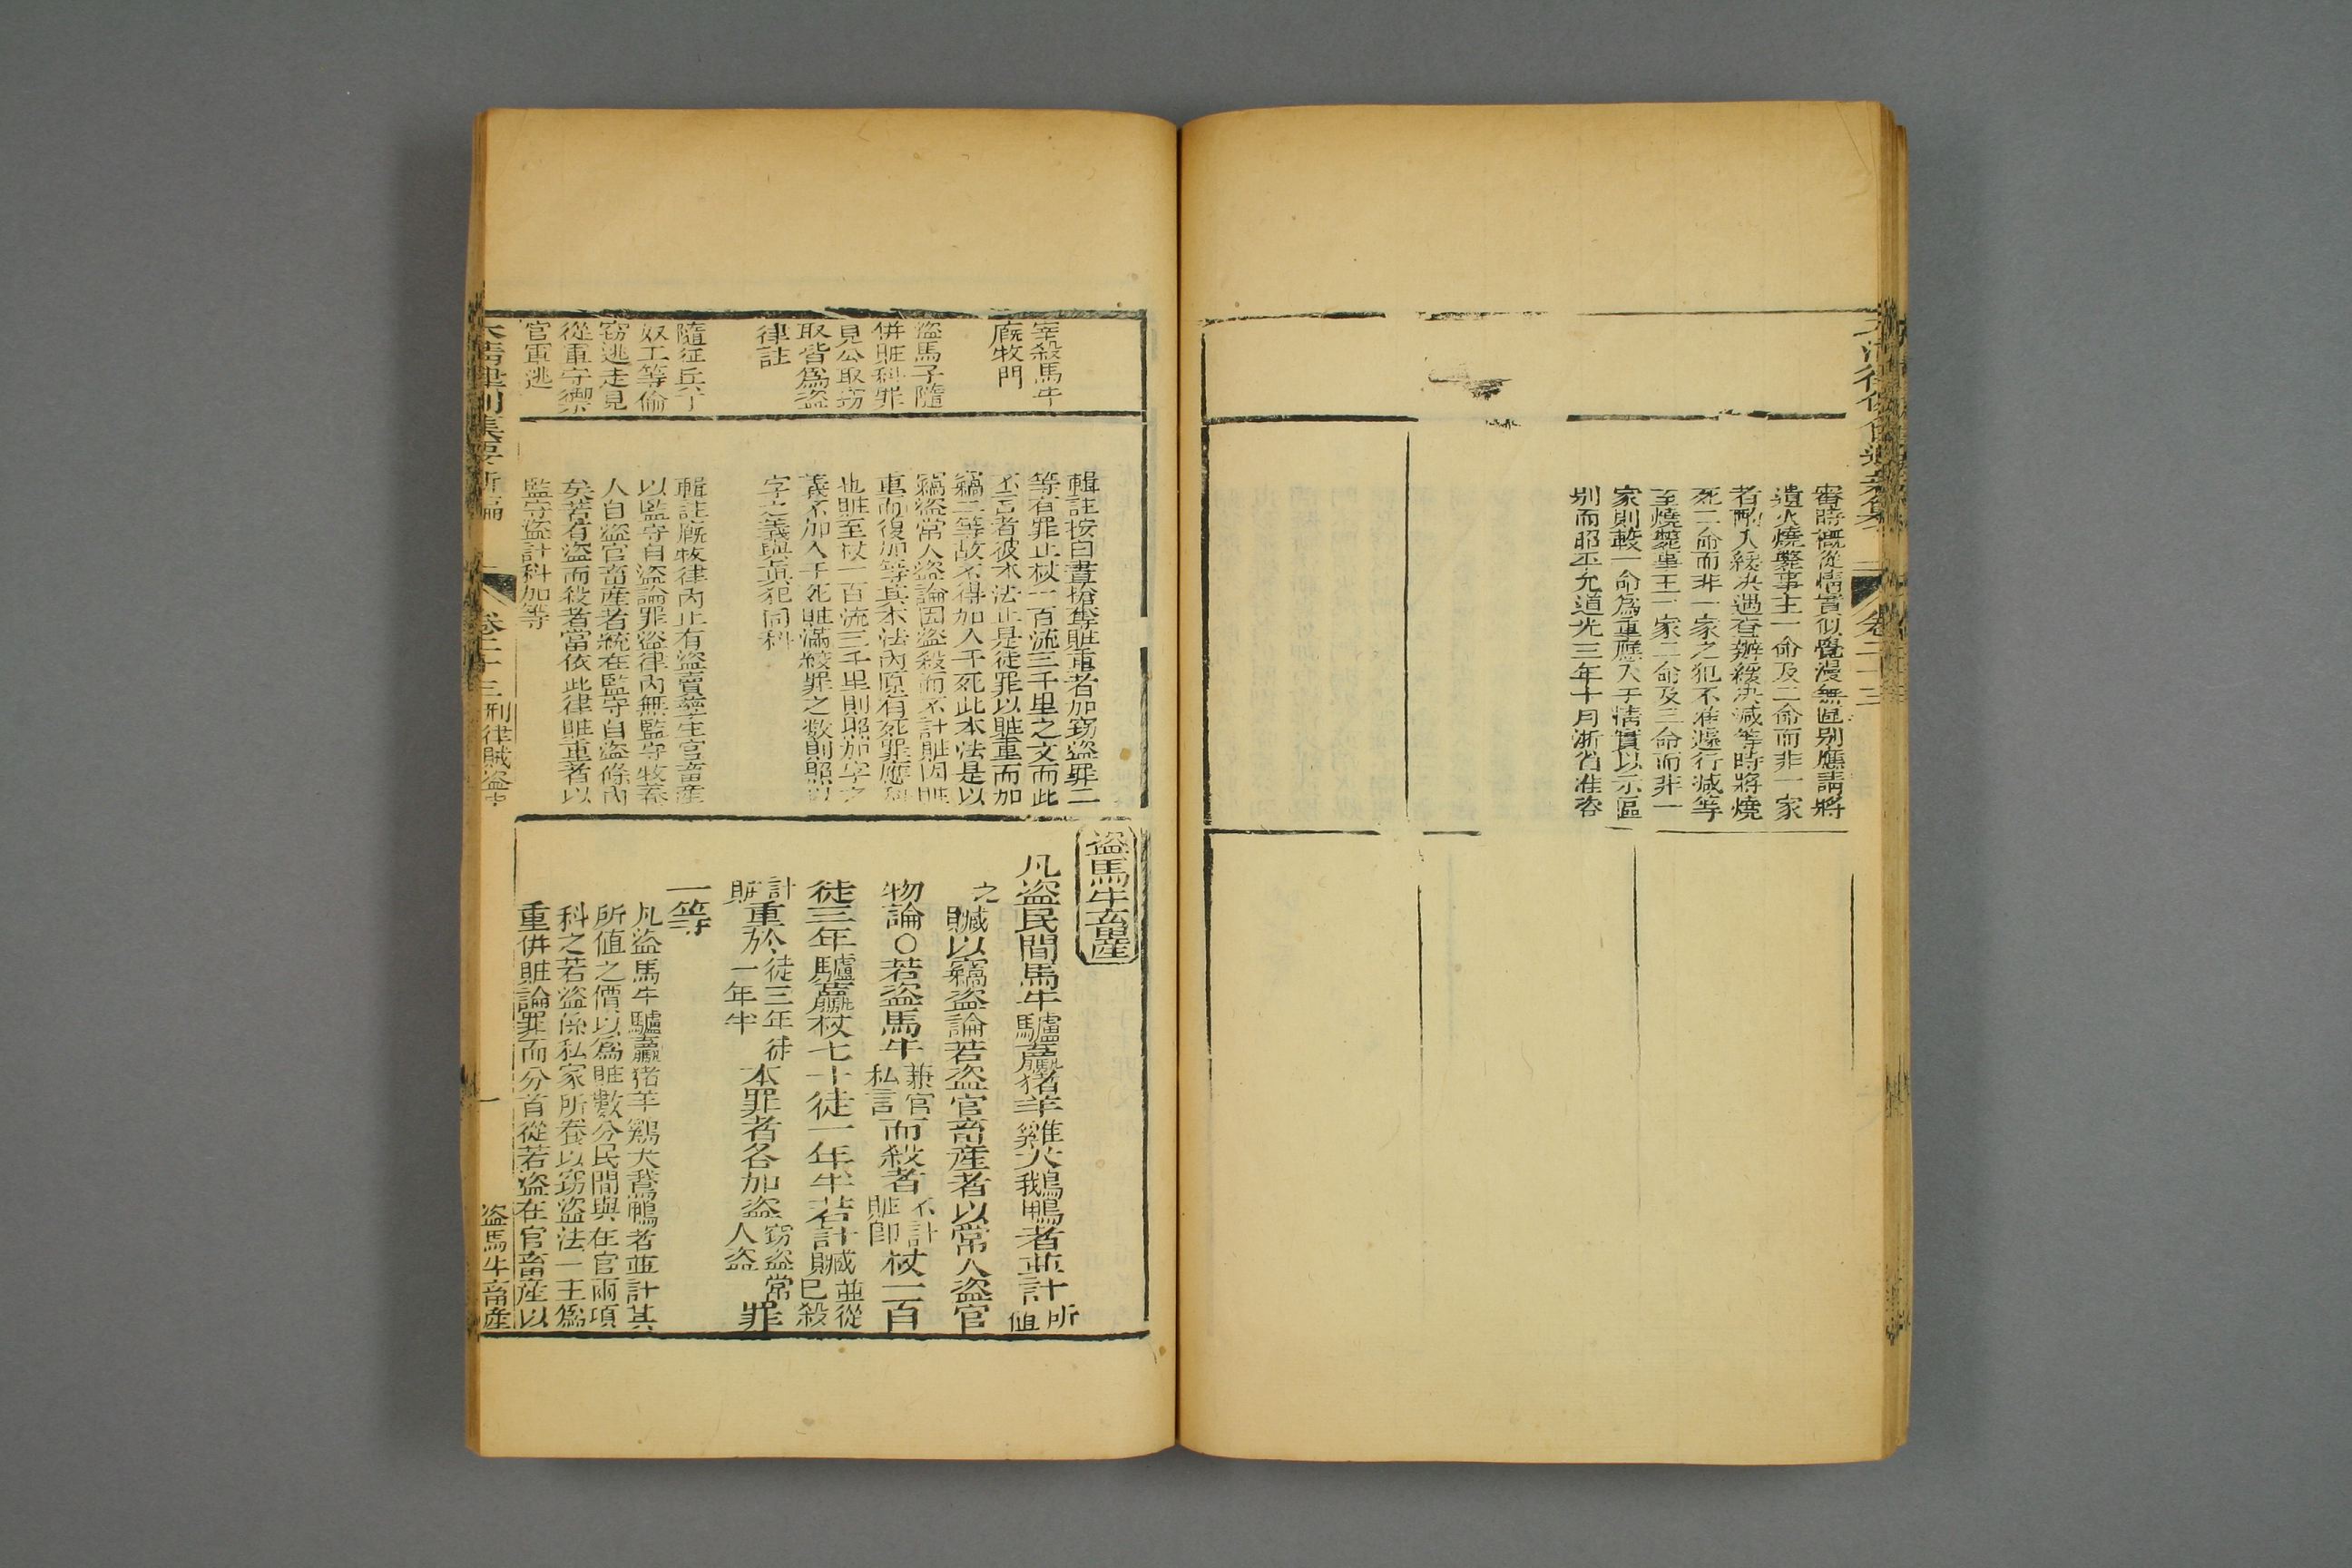 審時概從情實似覺漫無區别應請將
遺火燒斃事主一命及二命而非一家
者酌入緩决遇查辦緩决減等時將燒
死二命而非一家之犯不准遽行減等
至燒斃事主一家二命及三命而非一
家則較一命爲重應入于情實以示區
别而昭平允道光三年十月浙省准咨
卷二十三
宰殺馬牛
廐牧門
盗馬子隨
併賍科罪
見公取竊
取皆爲盗
律註
隨征兵丁
奴工等偷
竊逃走見
從軍守禦
官軍逃
輯註按白晝搶奪賍重者加竊盗罪二
等有罪止杖一百流三千里之文而此
不言者彼本法止是徒罪以賍重而加
竊二等故不得加入于死此本法是以
竊盗常人盗論因盗殺而不計賍因賍
重而復加一等其本法內原有死罪應科
也賍至杖一百流三千里則照加字之
義不加入于死賍滿絞罪之數則照以
字之義與真犯同科
輯註廐牧律內止有盗賣孳生官畜產
以監守自盗論罪盗律內無監守牧養
人自盗官畜產者統在監守自盗條內
矣若有盗而殺者當依此律賍重者以
監守盗計科加等
盗馬牛畜產
凡盗民間馬牛驢驘猪羊雞犬鵝鴨者並計所值
之贜以竊盗論若盗官畜產者以常人盗官
物論○若盗馬牛兼官私言而殺者不計賍即杖一百
徒三年驢驘杖七十徒一年半若計贜並從已殺
計賍重於徒三年徒一年半本罪者各加盗竊盗常人盗罪
一等
凡盗馬牛驢驘猪羊鷄犬鵞鴨者並計其
所值之價以爲賍數分民間與在官兩項
科之若盗係私家所養以竊盗法一主爲
重併賍論罪而分首從若盗在官畜產以
大清律例集要新編
卷二十三刑律賊盗中
一
盗馬牛畜產